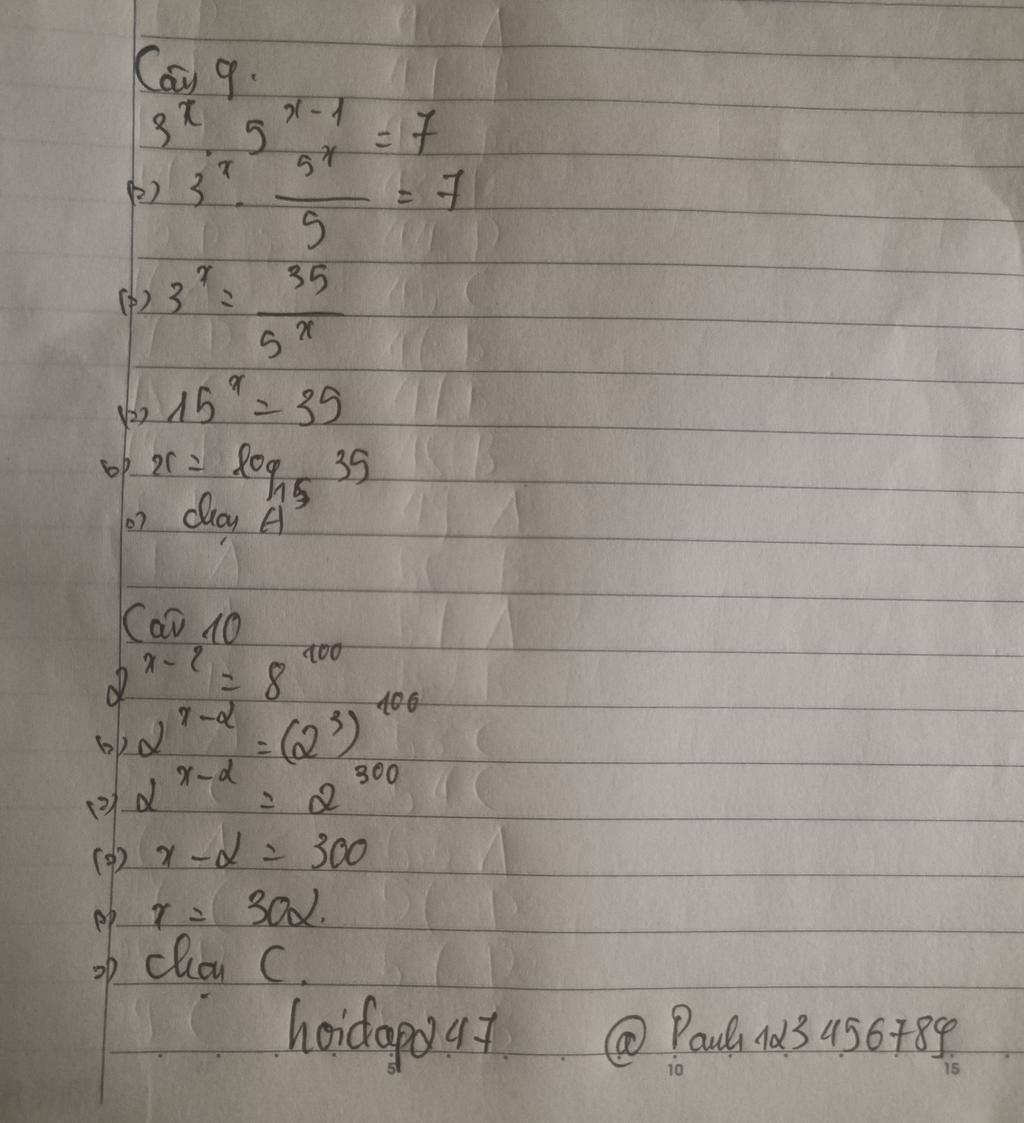 Câu 9.
3^x . 5^{x-1} = 7
(=) 3^x . \frac{5^x}{5} = 7
(=) 3^x = \frac{35}{5^x}
(=) 15^x = 35
(=) x = log_{15} 35
=) chọn A
Câu 10
2^{x-2} = 8^{100}
(=) 2^{x-2} = (2^3)^{100}
(=) 2^{x-2} = 2^{300}
(=) x - 2 = 300
(=) x = 302.
=) chọn C.
hoidap247 @Pauli123456789
5 10 15